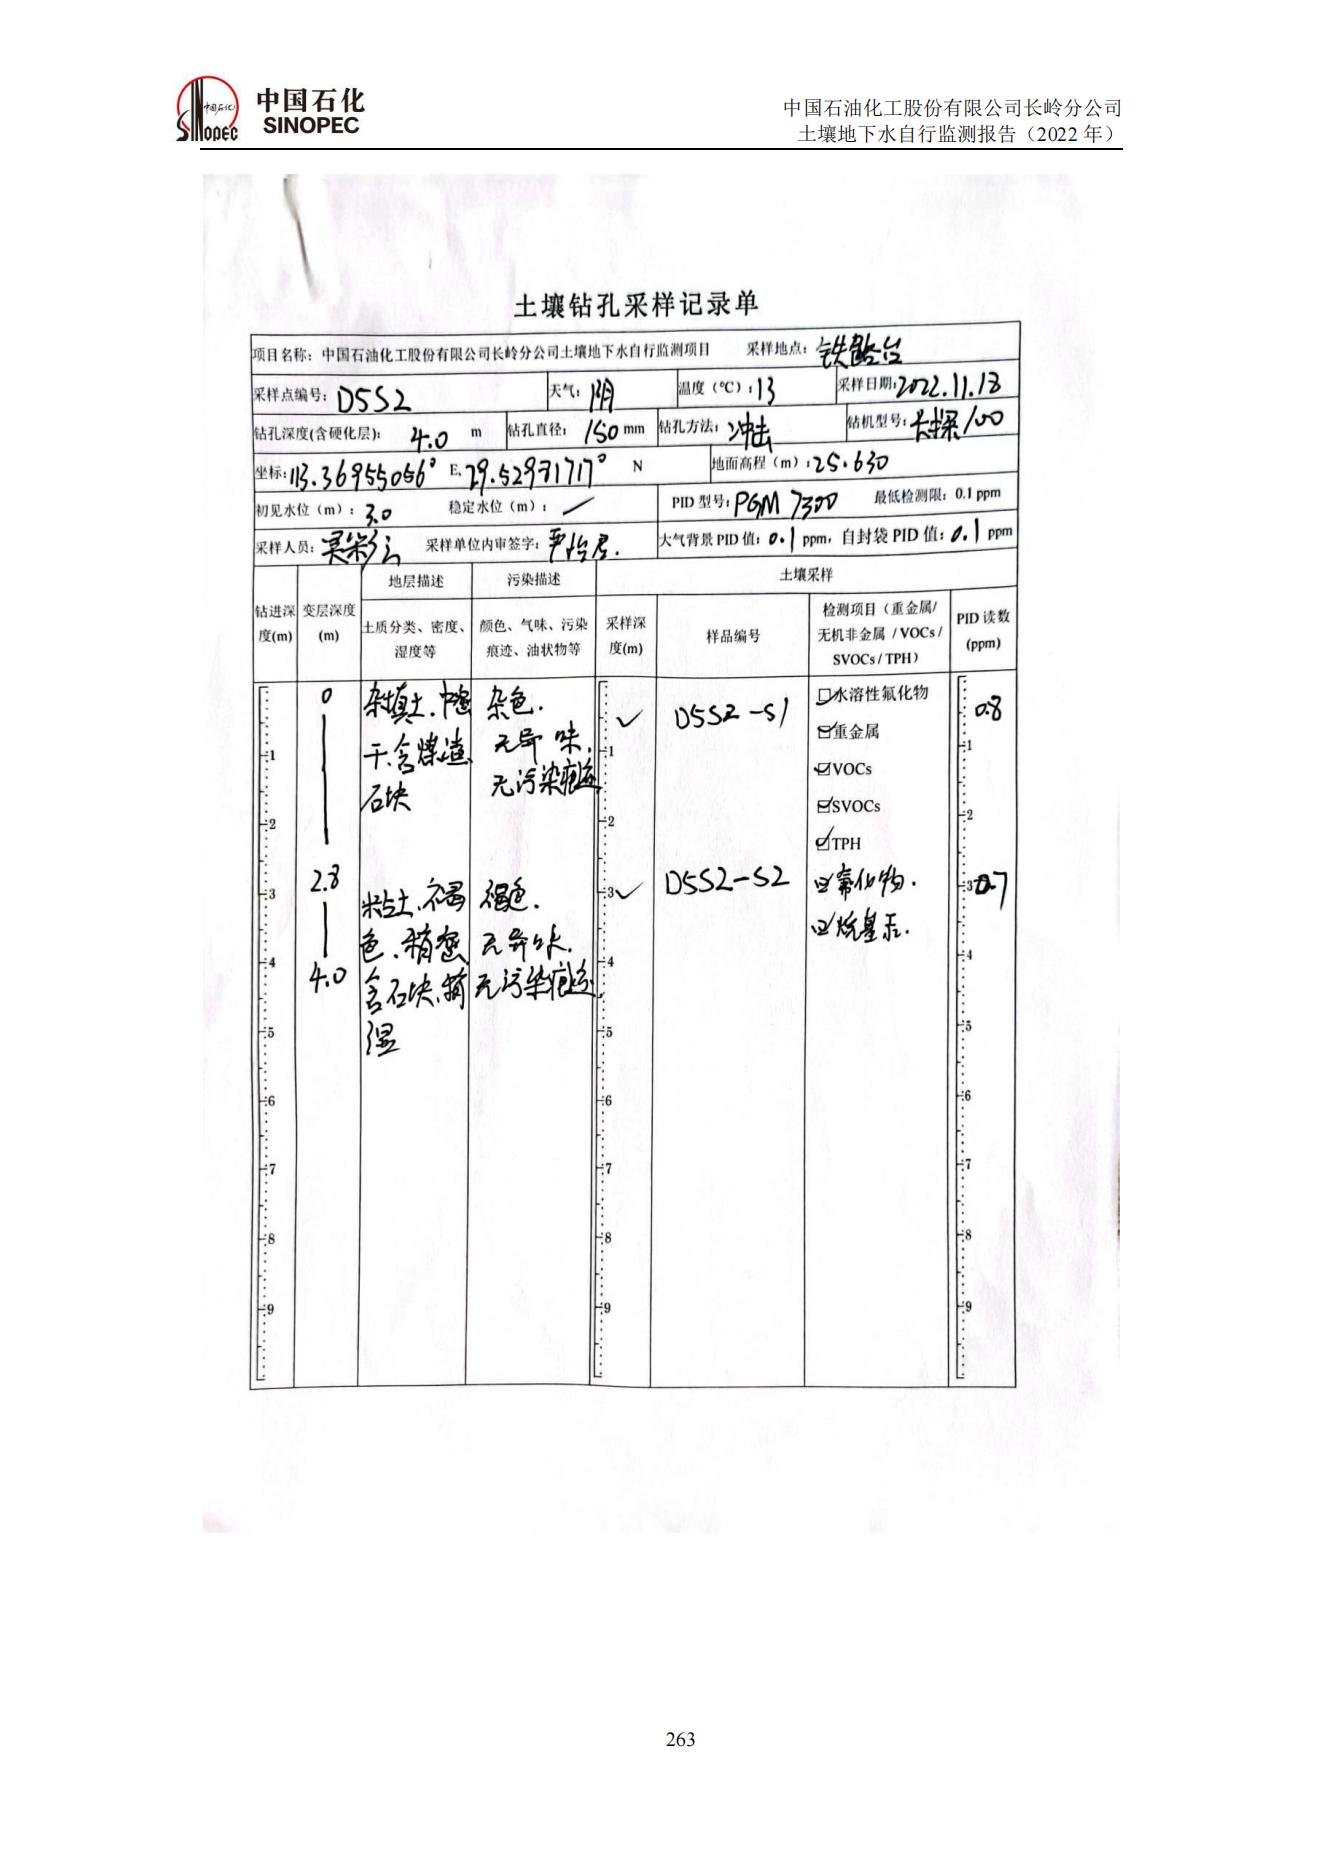 中国石化
SINOPEC
中国石油化工股份有限公司长岭分公司
土壤地下水自行监测报告（2022 年）
土壤钻孔采样记录单
项目名称：中国石油化工股份有限公司长岭分公司土壤地下水自行监测项目 采样地点：铁路台
采样点编号：D5S2 天气：阴 温度（℃）：13 采样日期：2022.11.18
钻孔深度(含硬化层)： 4.0 m 钻孔直径： 150 mm 钻孔方法：冲击 钻机型号：长探100
坐标：113.36955056° E, 29.52971717° N 地面高程（m）：25.630
初见水位（m）：3.0 稳定水位（m）：／ PID 型号：PGM 7300 最低检测限：0.1 ppm
采样人员： 采样单位内审签字： 大气背景 PID 值：0.1 ppm，自封袋 PID 值：0.1 ppm
钻进深度(m) 变层深度(m) 地层描述 污染描述 土壤采样
土质分类、密度、湿度等 颜色、气味、污染痕迹、油状物等 采样深度(m) 样品编号 检测项目（重金属/无机非金属 / VOCs / SVOCs / TPH） PID 读数(ppm)
0 杂填土、中密 杂色. ✓ D5S2-S1 □水溶性氟化物 0.8
干、含煤渣 无异味. ☑重金属
石块 无污染痕迹 ☑VOCs
☑SVOCs
☑TPH
2.8 粘土、褐 褐色. ✓ D5S2-S2 ☑氰化物. 0.7
色、稍密 无异味. ☑烷基汞.
4.0 含石块、稍 无污染痕迹
湿
1 1 1
2 2 2
3 3 3
4 4 4
5 5 5
6 6 6
7 7 7
8 8 8
9 9 9
263